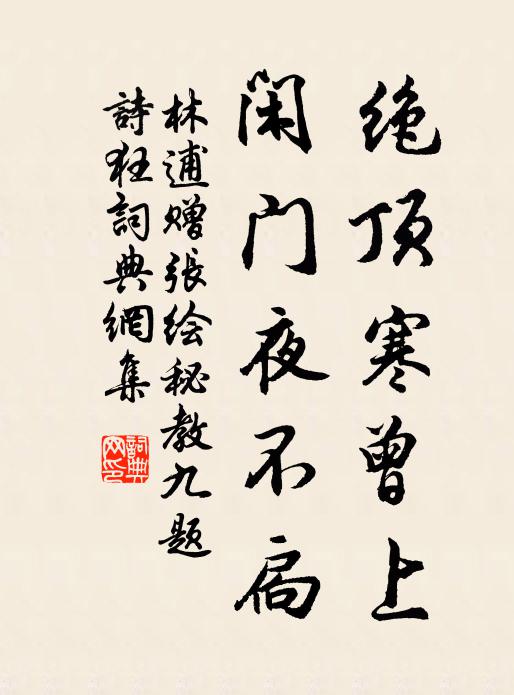 绝顶寒曾上
闲门夜不扃
林逋赠張绘秘教九题
詩狂詞典網集
詞典網印